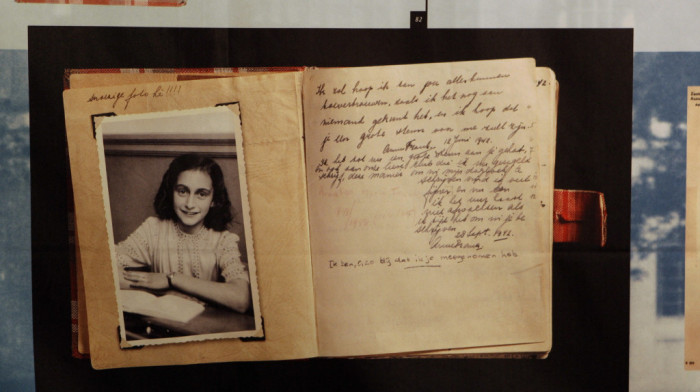 82
snoezige foto hè!!!!
Ik zal hoop ik aan jou alles kunnen
toevertrouwen, zoals ik het nog aan
niemand gekund heb, en ik hoop dat
je een grote steun voor me zult zijn.
Anne Frank. 12 Juni 1942.
Ik heb tot nu toe een grote steun aan je gehad,
en ook aan onze lieve club die ik nu geregeld
schrijf, deze manier om in mijn dagboek te
schrijven vind ik veel
fijner en nu kan
ik het uur haast
niet afwachten als
ik tijd heb om in je te
schrijven.
28 Sept. 1942.
Anne Frank.
Ik ben, o, zo blij dat ik je meegenomen heb.